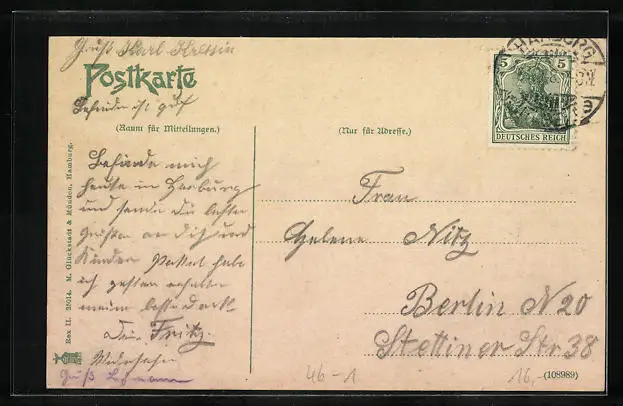 Gruß Karl
Postkarte
Befinden ist gut
(Raum für Mitteilungen.)
(Nur für Adresse.)
HAMBURG
5 5
DEUTSCHES REICH
Befinde mich
heute in Harburg
und sende Dir besten
Grüßen an Dich und
Kinder Packet habe
ich gestern erhalten
meinen besten Dank
Dein Fritz.
Gruß
Frau
Helene Nitz
Berlin N 20
Stettiner Str 38
Rex II. 25014. M. Glückstadt & Münden, Hamburg.
46-1
16,-
(108989)